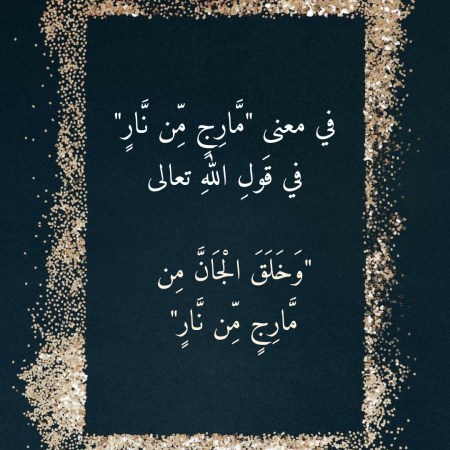 في معنى "مَّارِجٍ مِّن نَّارٍ"
في قَولِ اللهِ تعالى
"وَخَلَقَ الْجَانَّ مِن
مَّارِجٍ مِّن نَّارٍ"